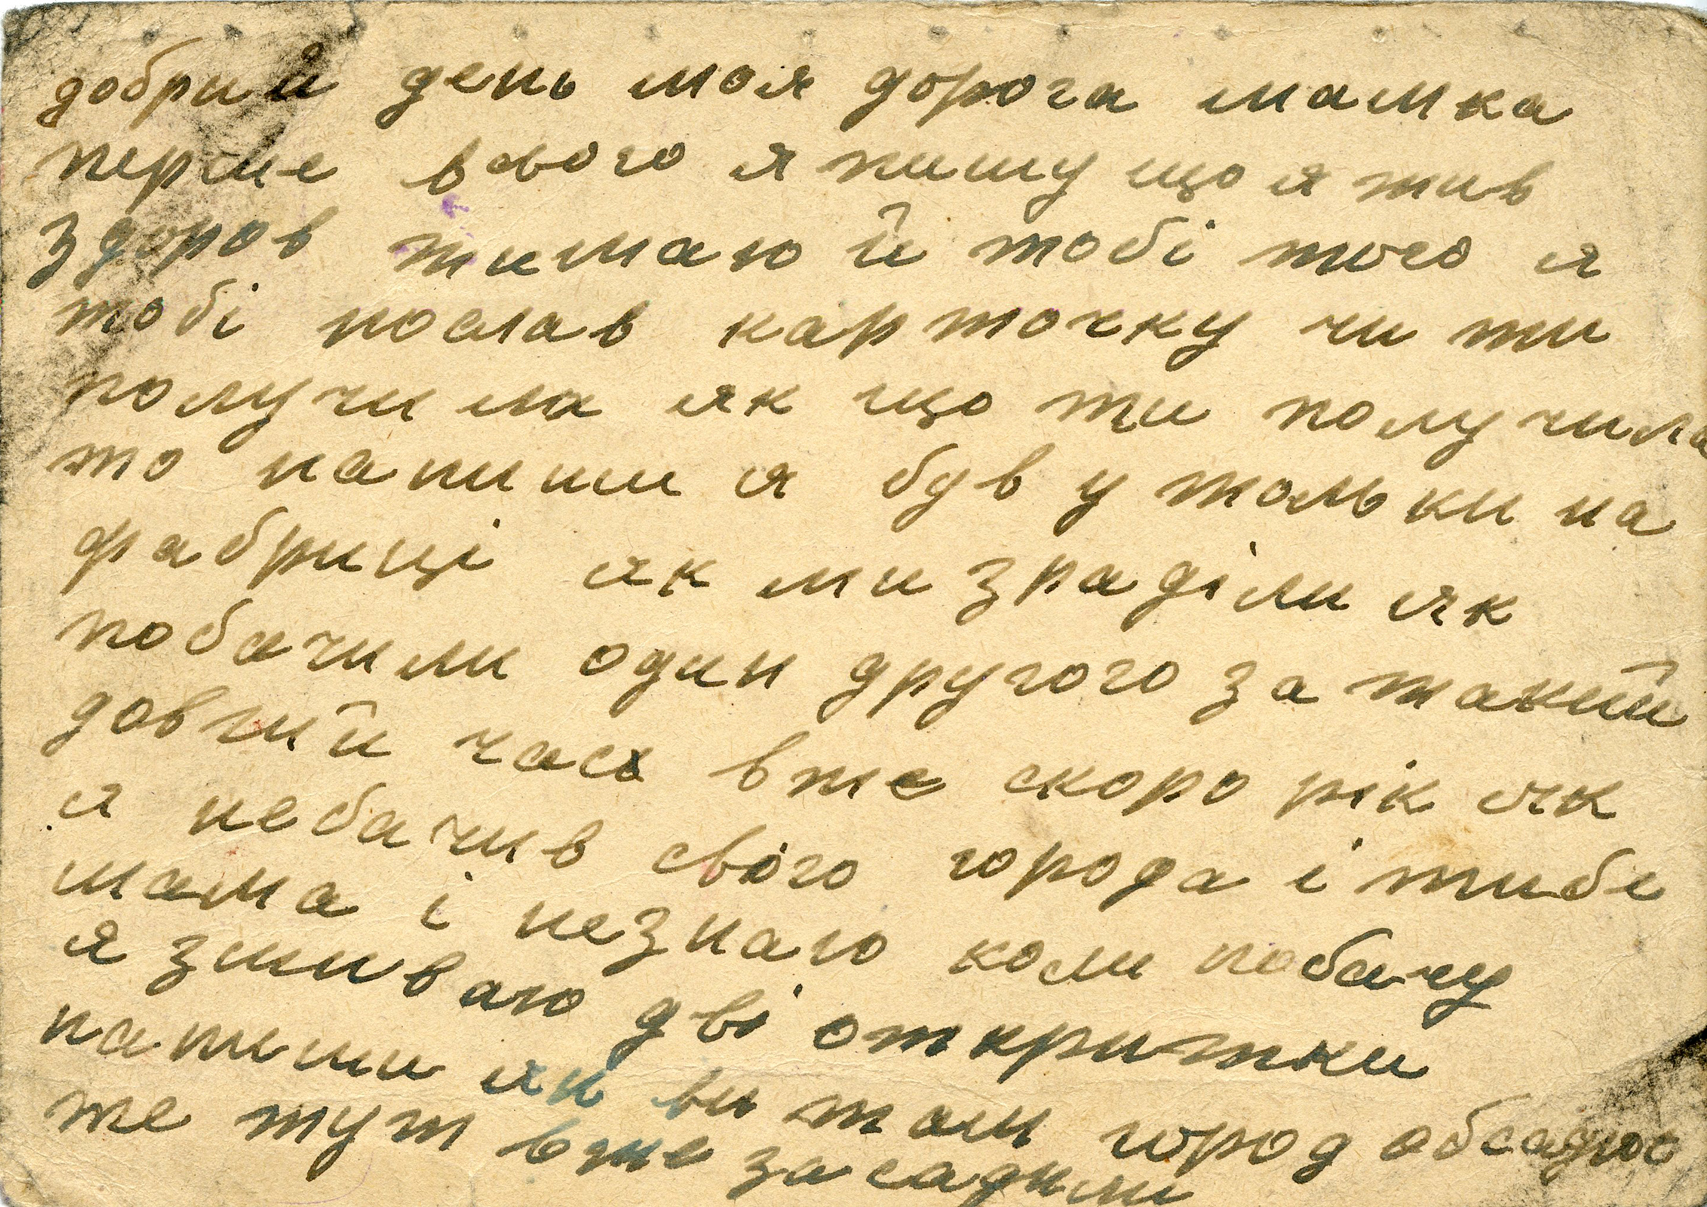 добрий день моя дорога мамка
перше всього я пишу що я жив
здоров жилаю й тобі того я
тобі послав карточку чи ти
получила як що ти получила
то напиши я був у тольки на
фабриці як ми зраділи як
побачили один другого за такий
довгий час вже скоро рік як
я небачив свого города і тибе
мама і незнаю коли побачу
я зшиваю дві открытки
напиши як ви там город обсадю
же тут вже засадили